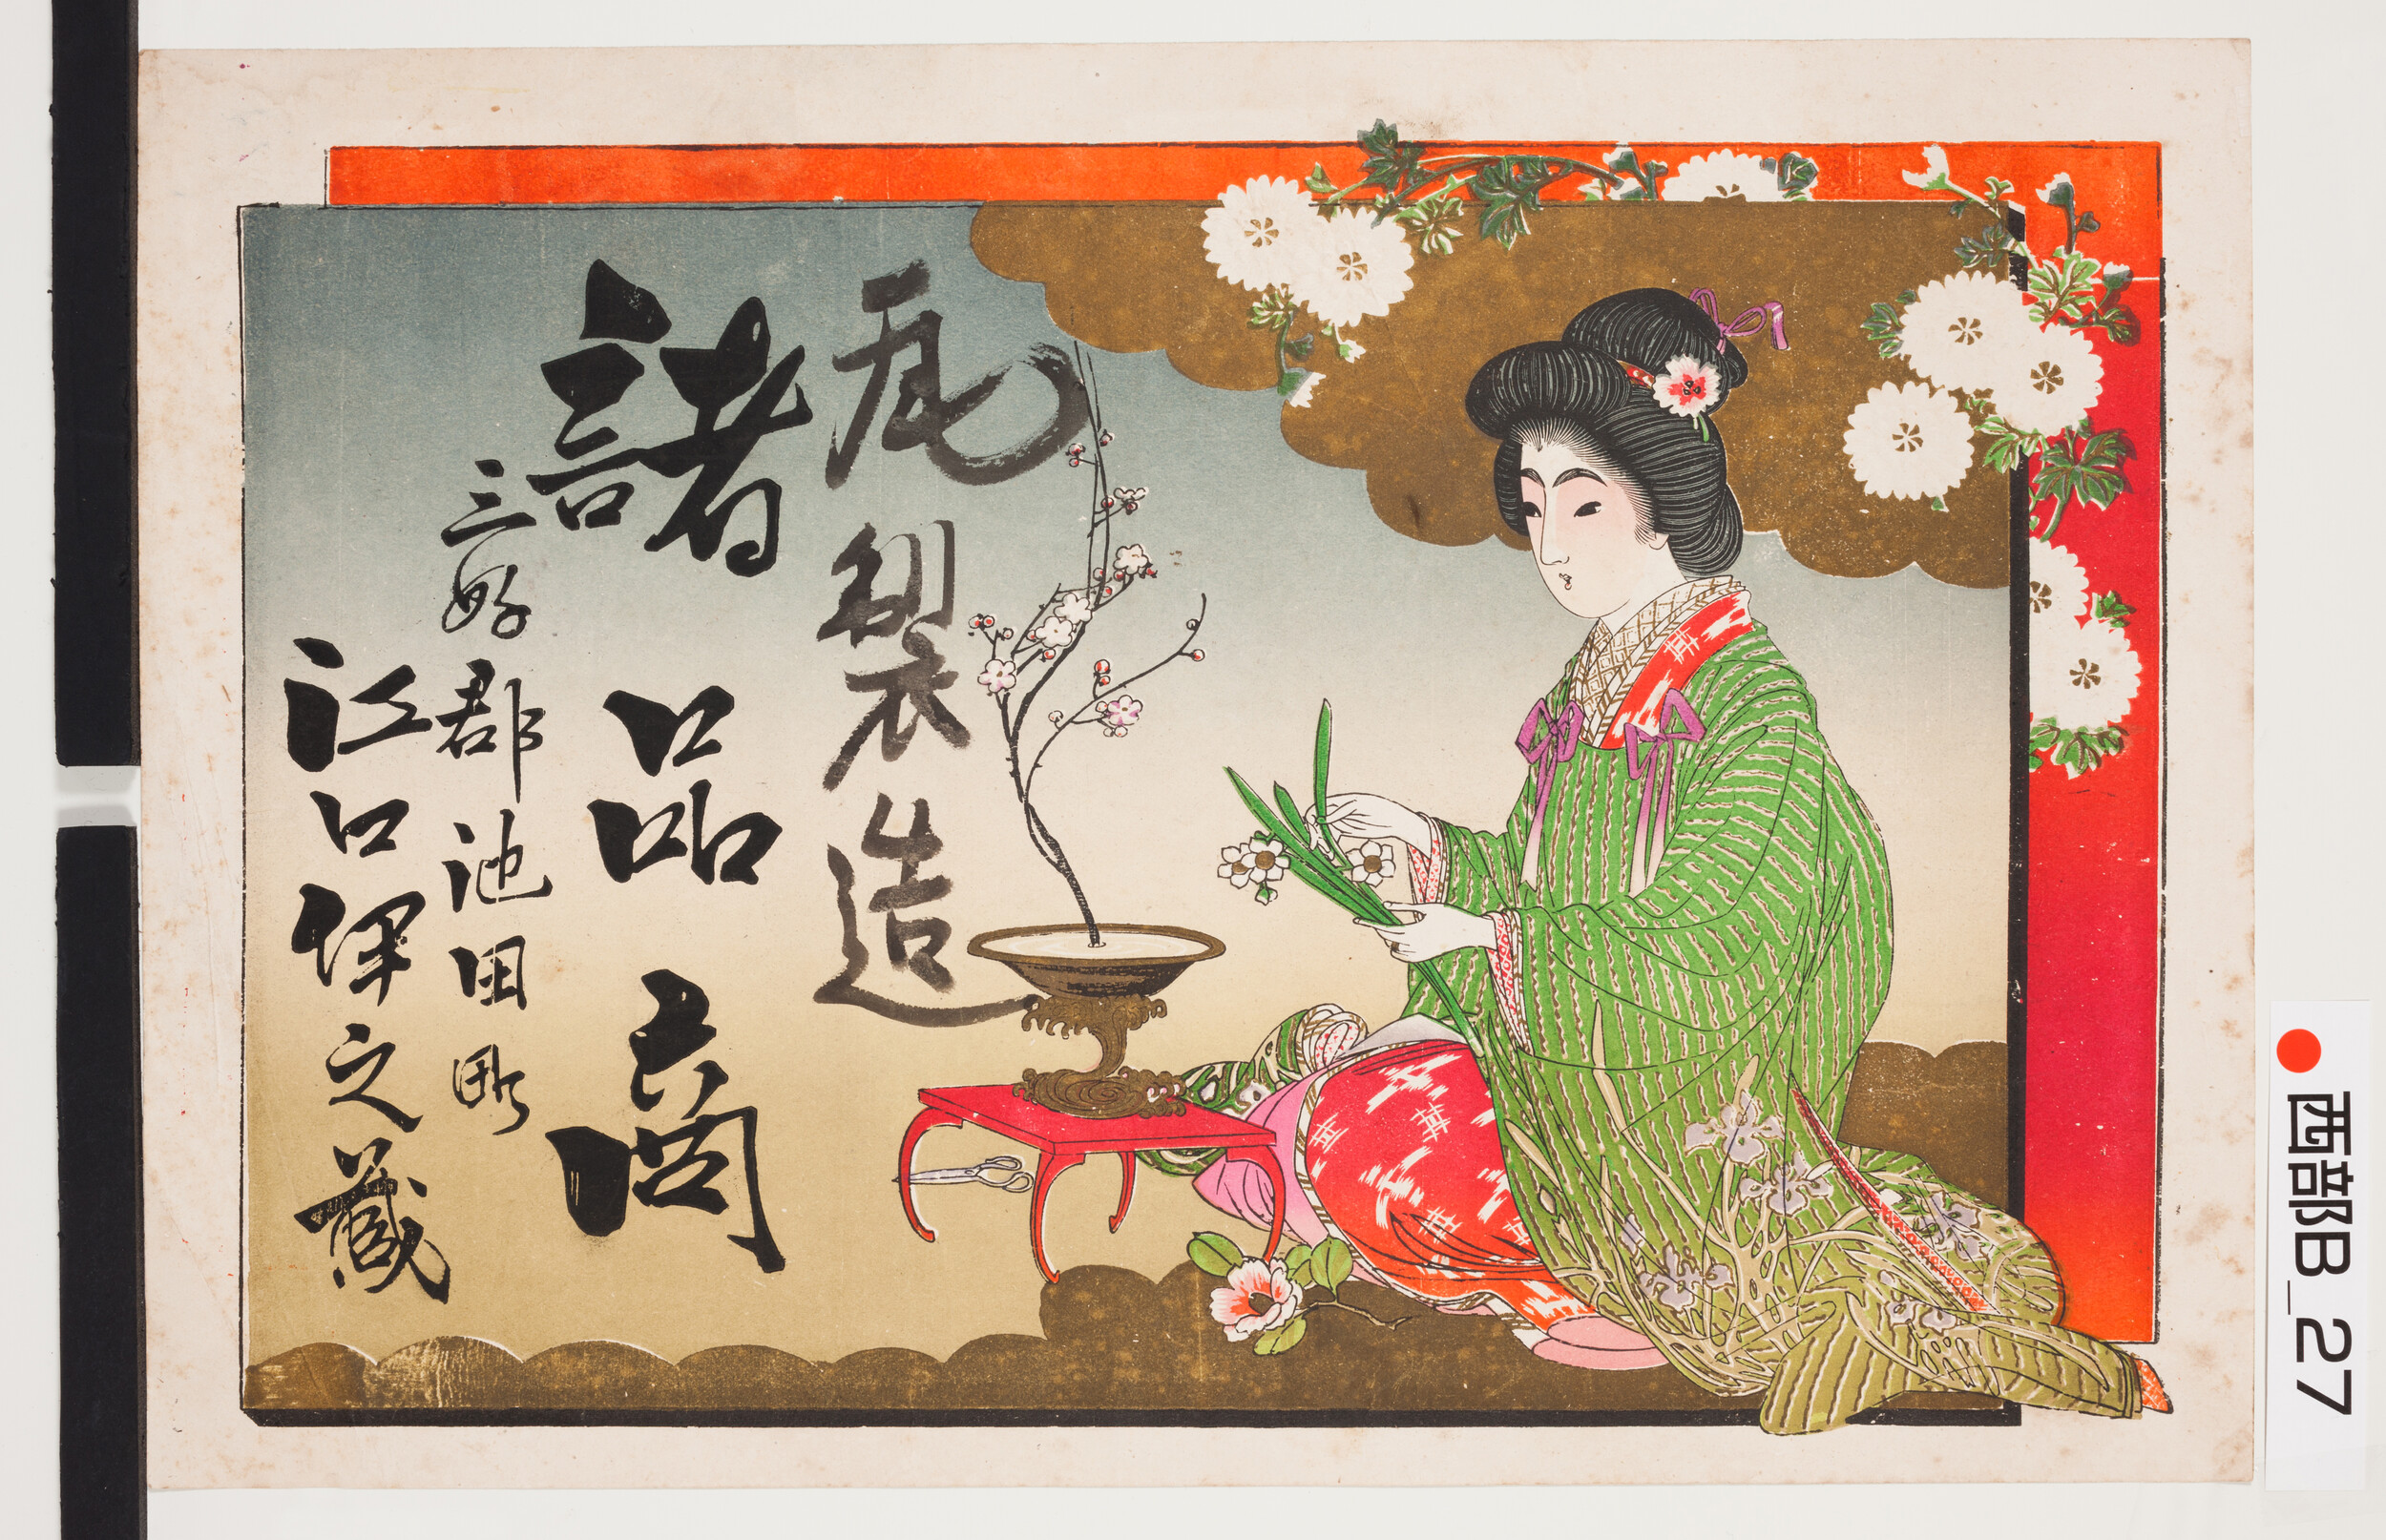 瓦製造
諸品商
三好郡池田町
江口伊之蔵
西部B_27